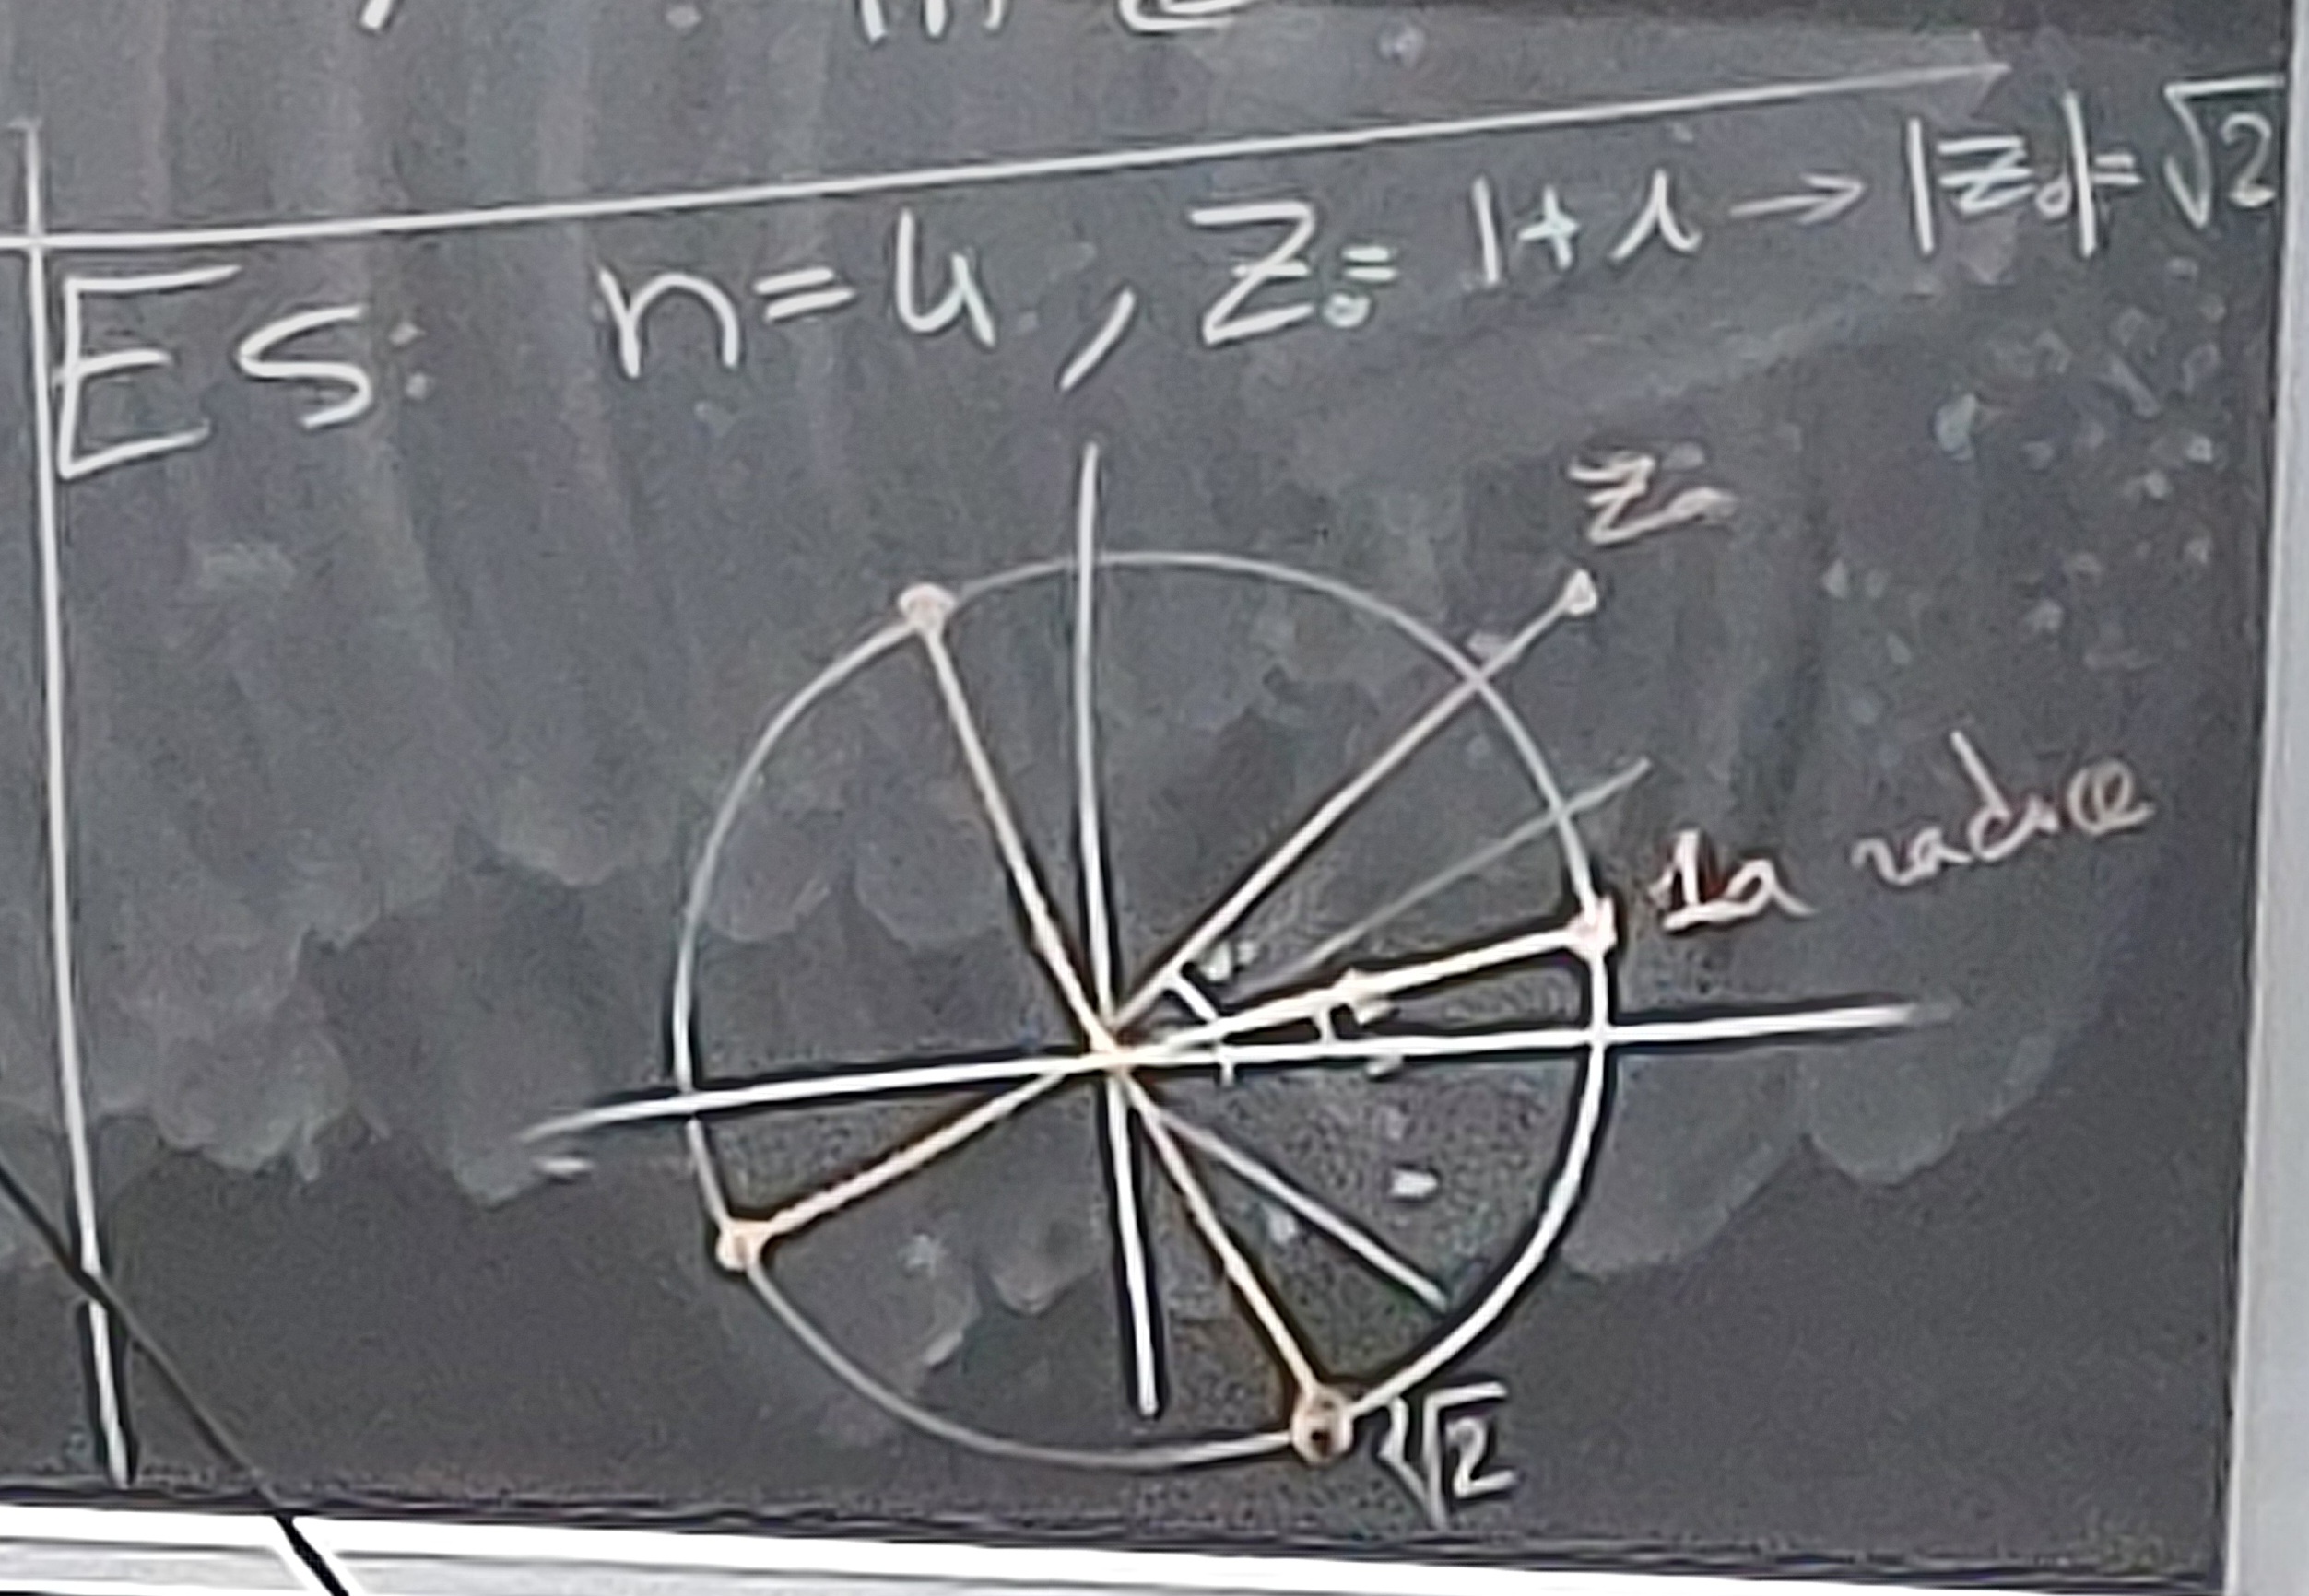 ES: n=4, Z₀= 1+i → |Z₀|= √2
Z₀
1a radice
√2